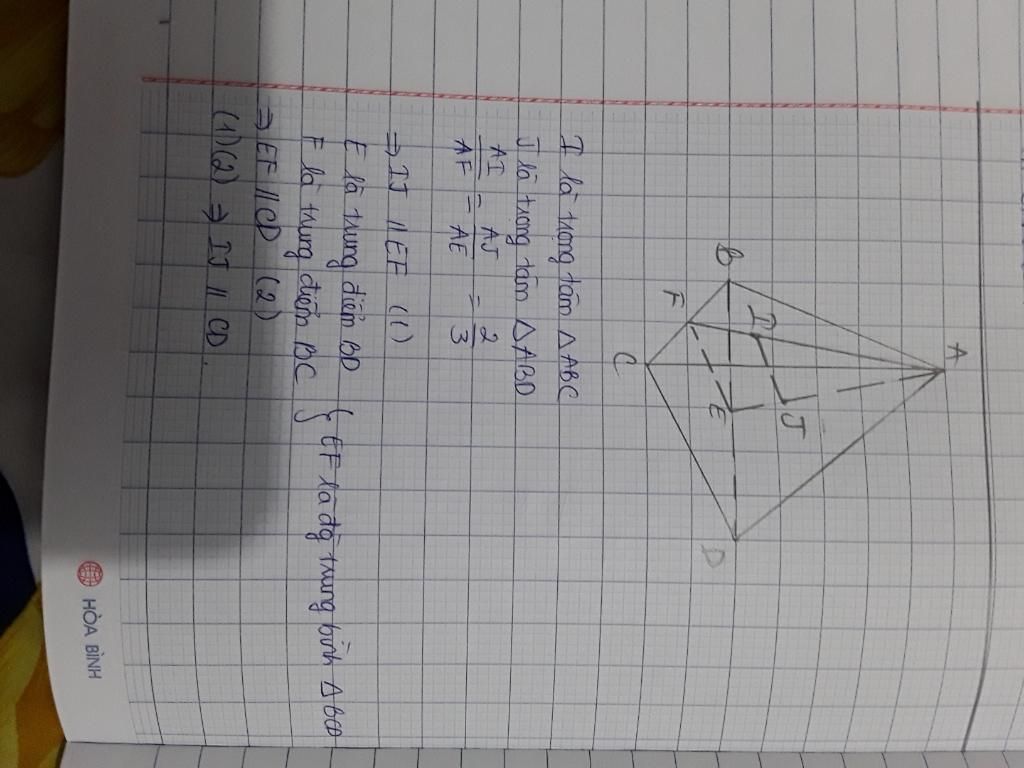 A
B
I
J
F
E
C
D
I là trọng tâm △ABC
J là trọng tâm △ABD
AI/AF = AJ/AE = 2/3
⇒ IJ // EF (1)
E là trung điểm BD
F là trung điểm BC } EF là đg trung bình △BCD
⇒ EF // CD (2)
(1)(2) ⇒ IJ // CD.
HÒA BÌNH